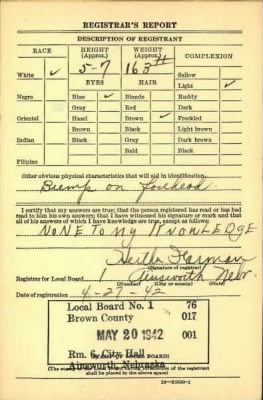 REGISTRAR'S REPORT
DESCRIPTION OF REGISTRANT
RACE HEIGHT (Approx.) WEIGHT (Approx.) COMPLEXION
5-7 163#
White ✓ Sallow
EYES HAIR Light ✓
Negro Blue ✓ Blonde Ruddy
Gray Red Dark
Oriental Hazel Brown ✓ Freckled
Brown Black Light brown
Indian Black Gray Dark brown
Bald Black
Filipino
Other obvious physical characteristics that will aid in identification
Bump on forehead
I certify that my answers are true; that the person registered has read or has had
read to him his own answers; that I have witnessed his signature or mark and that
all of his answers of which I have knowledge are true, except as follows:
NONE TO MY KNOWLEDGE
(Signature of registrar)
Registrar for Local Board 1 Ainsworth Nebr.
(Number) (City or county) (State)
Date of registration 4-27-42
Local Board No. 1 76
Brown County 017
MAY 20 1942 001
Rm. 6, City Hall
Ainsworth, Nebraska
(STAMP OF LOCAL BOARD)
of the registrant
shall be placed in the above space)